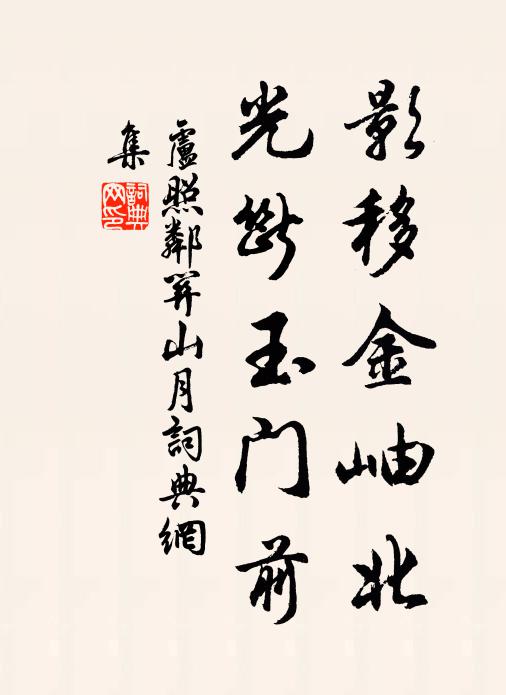 影移金岫北
光断玉门前
盧照鄰關山月詞典網
集
詞典网印